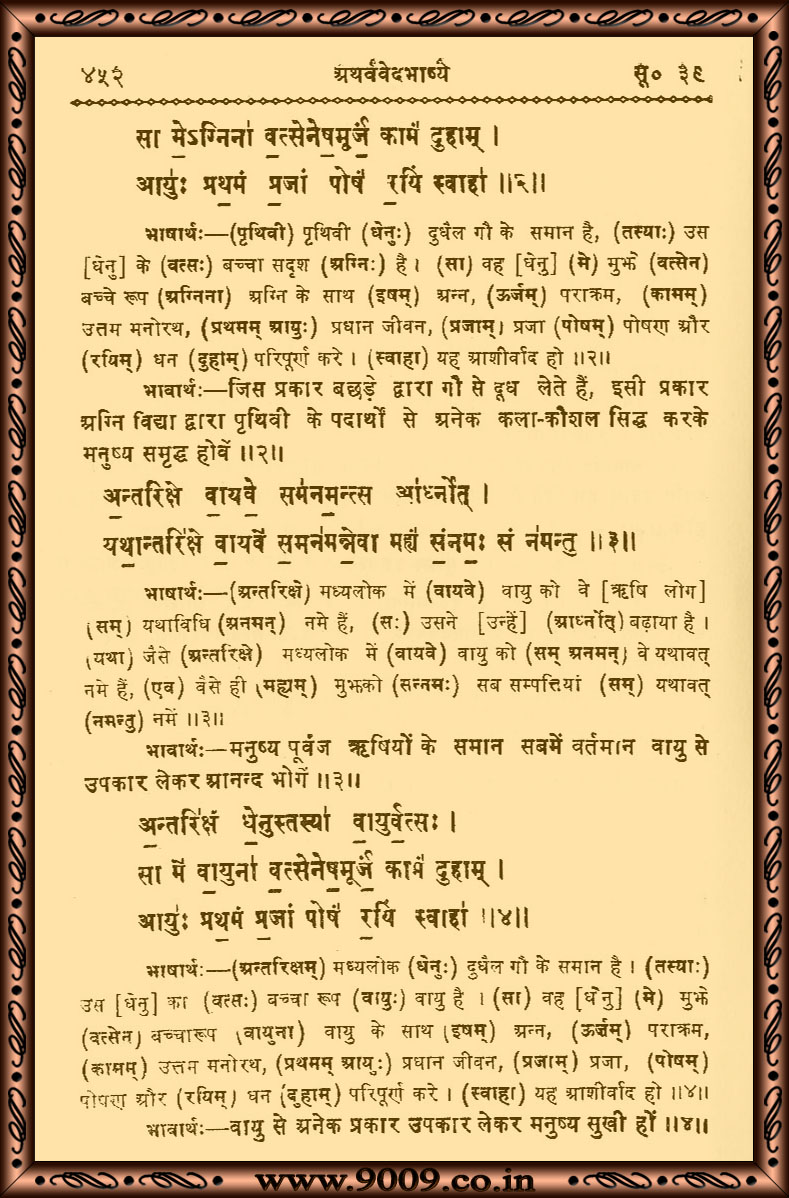 ४५२ अथर्ववेदभाष्ये सू० ३९
सा मे॒ऽग्निना॑ व॒त्सेनेष॒मूर्जं॒ कामं॑ दुहाम् ।
आयुः॑ प्रथ॒मं प्र॒जां पोषं॑ र॒यिं स्वाहा॑ ॥२॥
भाषार्थः—(पृथिवी) पृथिवी (धेनुः) दुधैल गौ के समान है, (तस्याः) उस
[धेनु] के (वत्सः) बच्चा सदृश (अग्निः) है । (सा) वह [धेनु] (मे) मुझे (वत्सेन)
बच्चे रूप (अग्निना) अग्नि के साथ (इषम्) अन्न, (ऊर्जम्) पराक्रम, (कामम्)
उत्तम मनोरथ, (प्रथमम् आयुः) प्रधान जीवन, (प्रजाम्) प्रजा (पोषम्) पोषण और
(रयिम्) धन (दुहाम्) परिपूर्ण करे । (स्वाहा) यह आशीर्वाद हो ॥२॥
भावार्थः—जिस प्रकार बछड़े द्वारा गौ से दूध लेते हैं, इसी प्रकार
अग्नि विद्या द्वारा पृथिवी के पदार्थों से अनेक कला-कौशल सिद्ध करके
मनुष्य समृद्ध होवें ॥२॥
अ॒न्तरिक्षे वा॒यवे॒ सम॑नम॒न्त्स आ॑र्ध्नोत् ।
यथा॒न्तरि॑क्षे वा॒यवे॑ स॒मन॑मन्ने॒वा मह्यं॑ सं॒नमः॒ सं न॑मन्तु ॥३॥
भाषार्थः—(अन्तरिक्षे) मध्यलोक में (वायवे) वायु को वे [ऋषि लोग]
(सम्) यथाविधि (अनमन्) नमे हैं, (सः) उसने [उन्हें] (आर्ध्नोत्) बढ़ाया है ।
(यथा) जैसे (अन्तरिक्षे) मध्यलोक में (वायवे) वायु को (सम् अनमन्) वे यथावत्
नमे हैं, (एव) वैसे ही (मह्यम्) मुझको (सन्नमः) सब सम्पत्तियां (सम्) यथावत्
(नमन्तु) नमें ॥३॥
भावार्थः—मनुष्य पूर्वज ऋषियों के समान सबमें वर्तमान वायु से
उपकार लेकर आनन्द भोगें ॥३॥
अ॒न्तरि॑क्षं धे॒नुस्तस्या॑ वा॒युर्व॒त्सः ।
सा मे॑ वा॒युना॑ व॒त्सेनेष॒मूर्जं॒ कामं॑ दुहाम् ।
आयुः॑ प्रथ॒मं प्र॒जां पोषं॑ र॒यिं स्वाहा॑ ॥४॥
भाषार्थः—(अन्तरिक्षम्) मध्यलोक (धेनुः) दुधैल गौ के समान है । (तस्याः)
उस [धेनु] का (वत्सः) बच्चा रूप (वायुः) वायु है । (सा) वह [धेनु] (मे) मुझे
(वत्सेन) बच्चारूप (वायुना) वायु के साथ (इषम्) अन्न, (ऊर्जम्) पराक्रम,
(कामम्) उत्तम मनोरथ, (प्रथमम् आयुः) प्रधान जीवन, (प्रजाम्) प्रजा, (पोषम्)
पोषण और (रयिम्) धन (दुहाम्) परिपूर्ण करे । (स्वाहा) यह आशीर्वाद हो ॥४॥
भावार्थः—वायु से अनेक प्रकार उपकार लेकर मनुष्य सुखी हों ॥४॥
www.9009.co.in